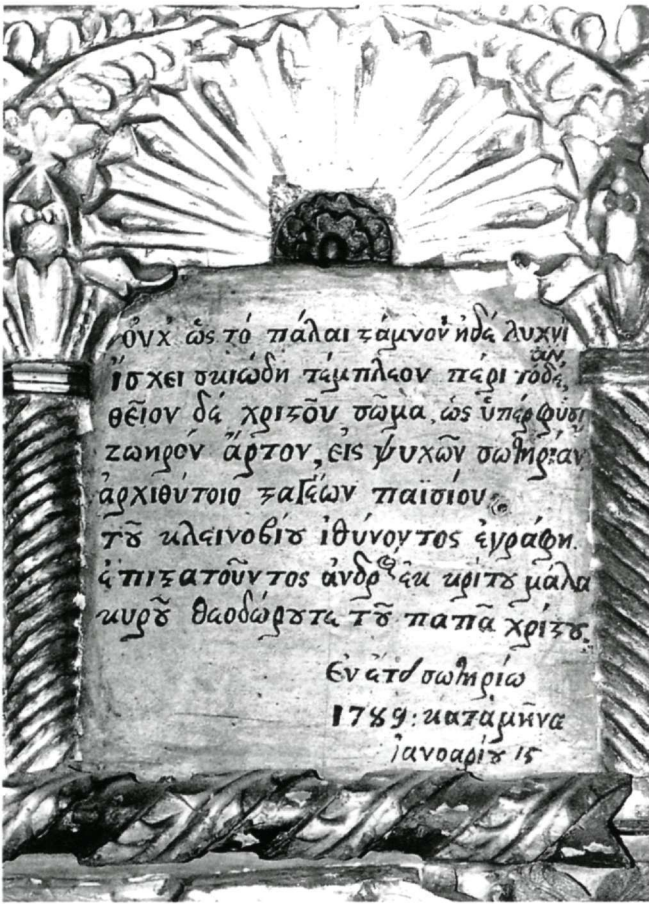 οὐχ ὡς τό πάλαι στάμνον ἠδέ λυχνίαν
ἴσχει σκιώδη τέμπλεον πέρι τόδε,
θεῖον δέ χριστοῦ σῶμα, ὡς ὑπέρφυσι
ζωηρόν ἄρτον, εἰς ψυχῶν σωτηρίαν
ἀρχιθύτοιο σταγέων παϊσίου
τοῦ κλεινοβίου ἰθύνοντος ἐγράφη.
ἐπιστατοῦντος ἀνδρὸς ἐκ κρίτου μάλα
κυροῦ θεοδώρου τε τοῦ παπᾶ χρίστου.
Εν ἔτει σωτηρίω
1789: κατά μῆνα
ἰανοαρίου 15